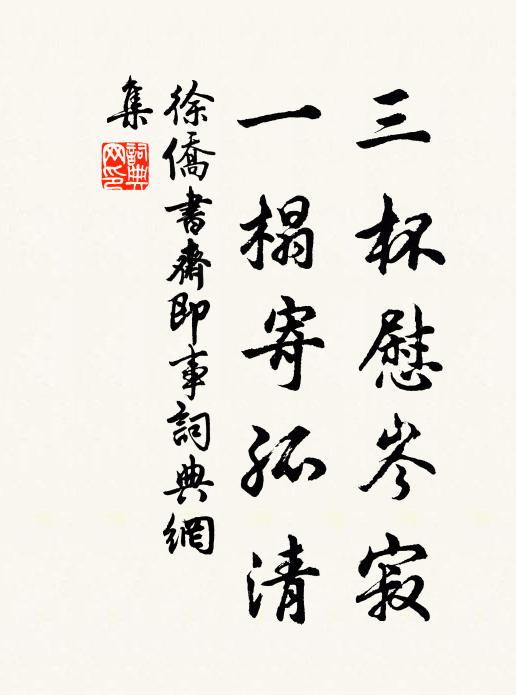 三杯慰岑寂
一榻寄孤清
徐僑書齋即事詞典網
集
詞典
网印